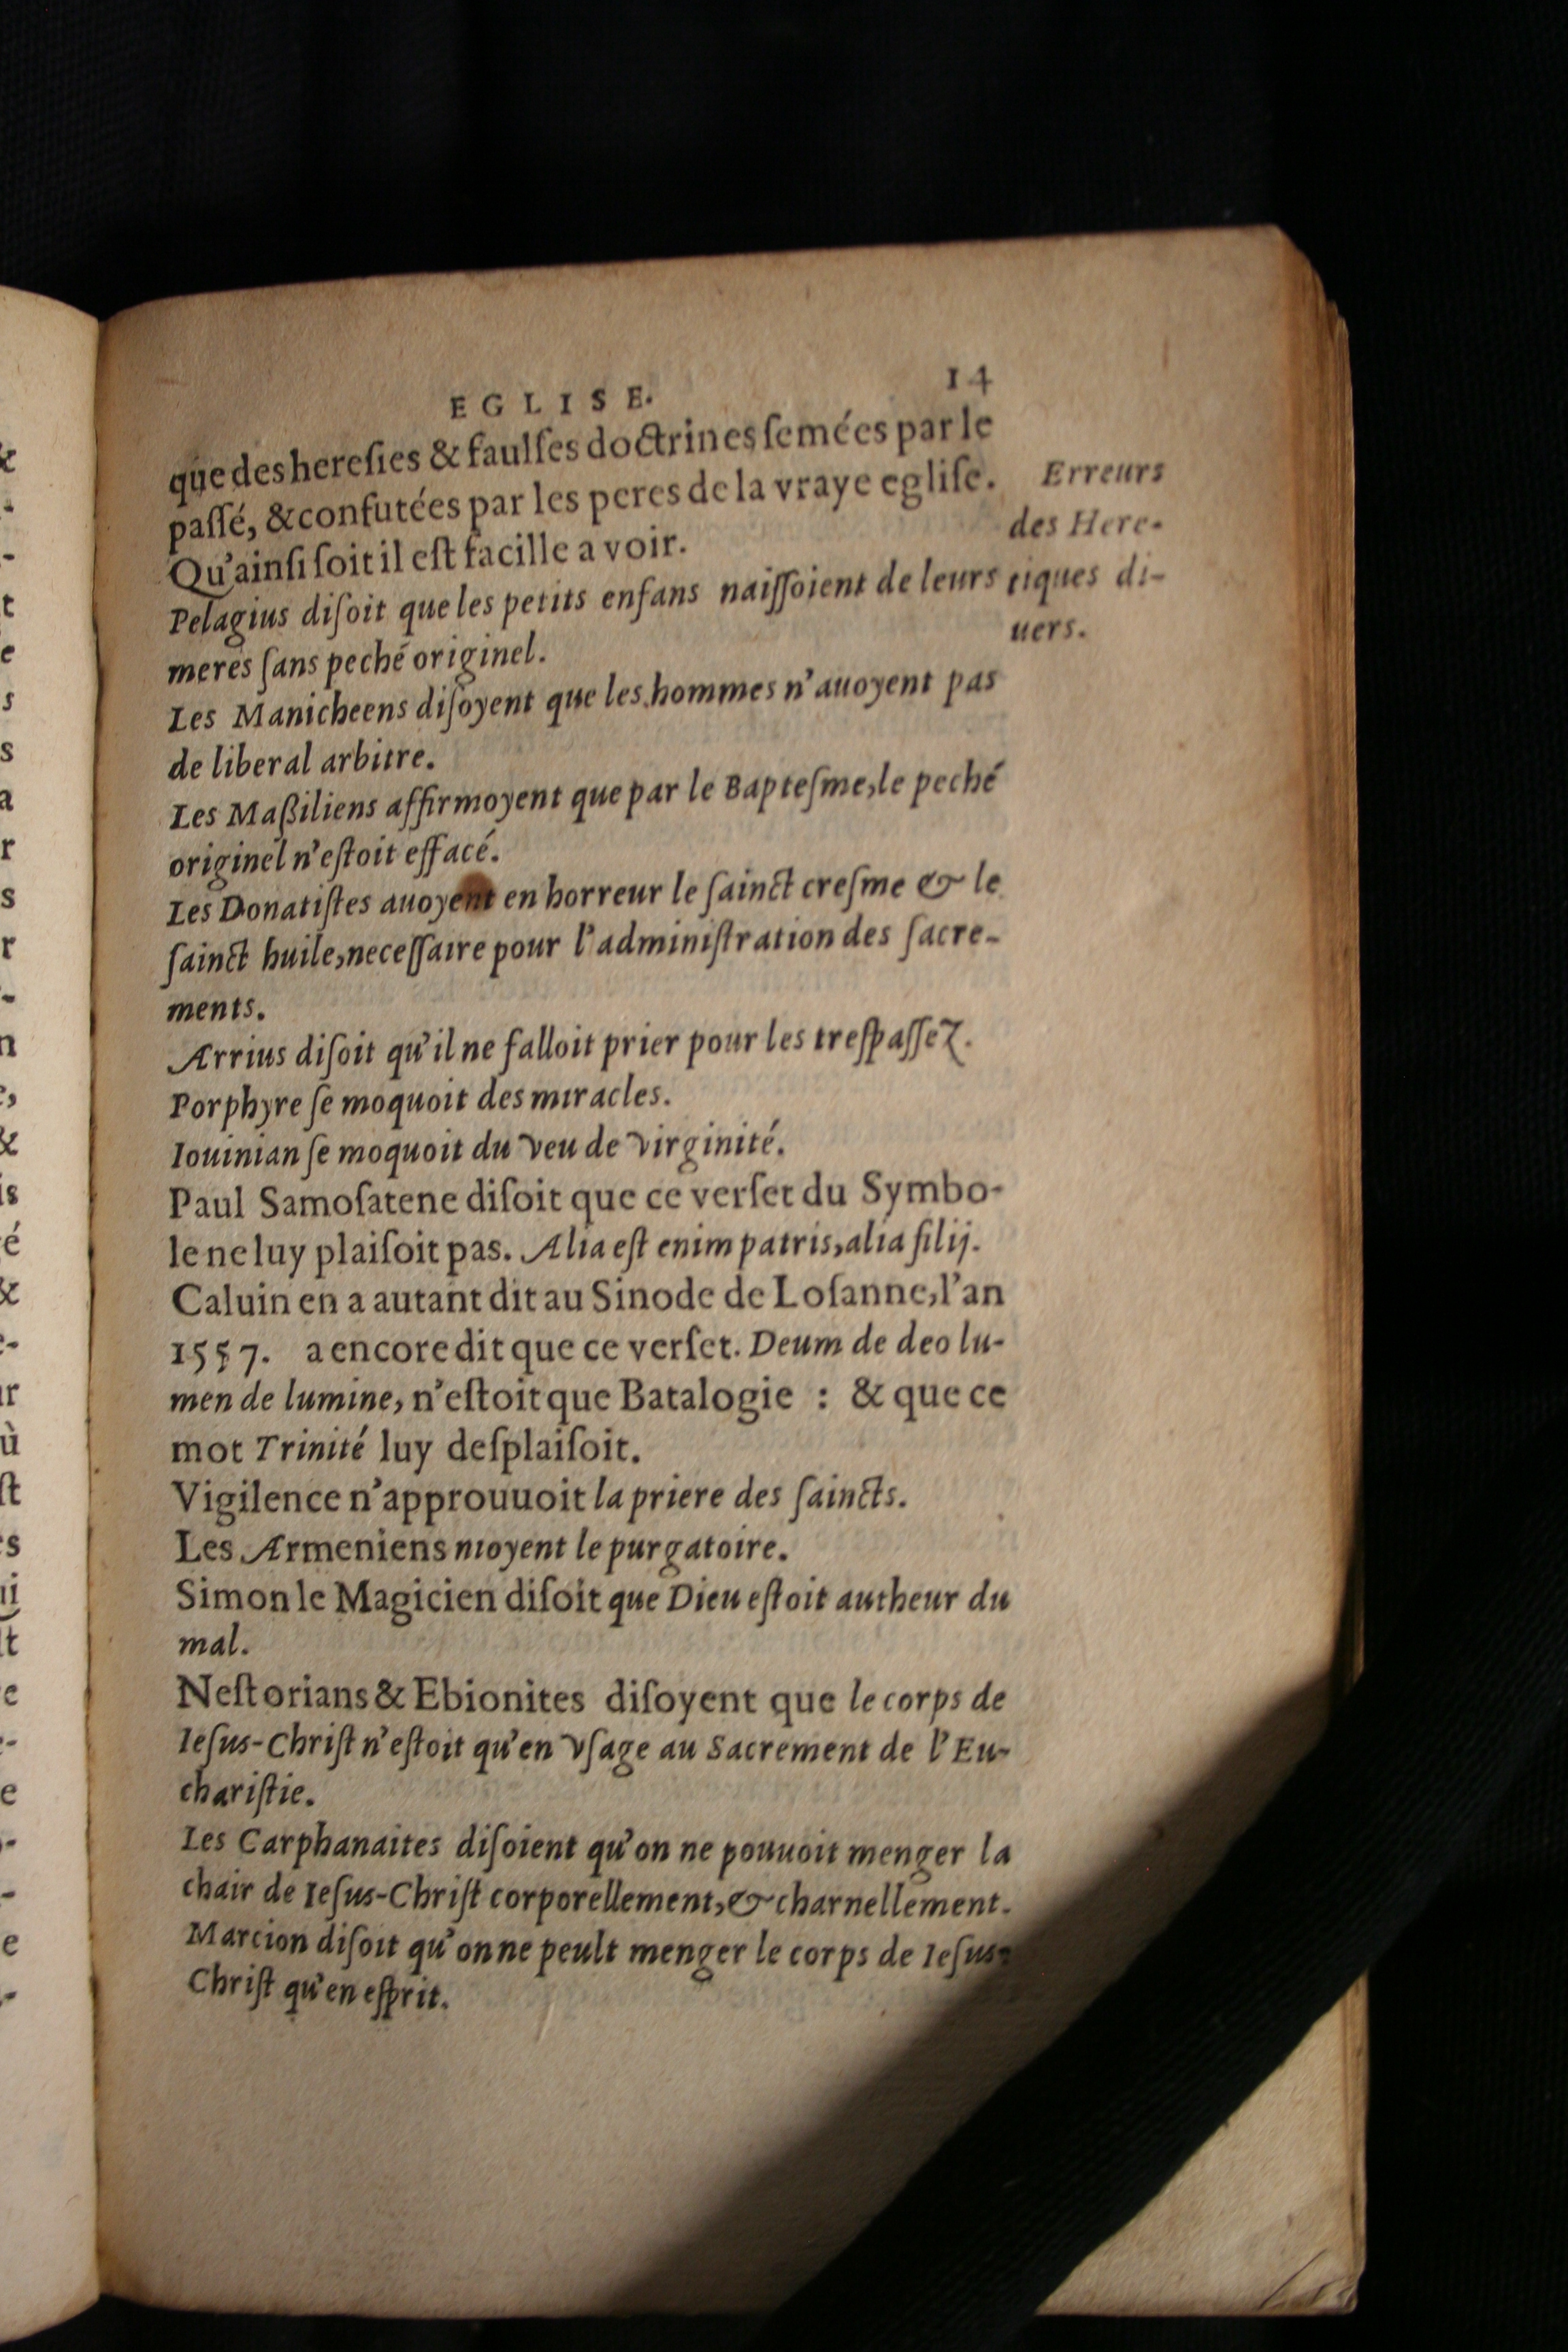 EGLISE. 14
que des heresies & faulses doctrines semées par le
passé, & confutées par les peres de la vraye eglise.
Qu'ainsi soit il est facille a voir.
Erreurs
des Here-
tiques di-
uers.
Pelagius disoit que les petits enfans naissoient de leurs
meres sans peché originel.
Les Manicheens disoyent que les hommes n'auoyent pas
de liberal arbitre.
Les Maßiliens affirmoyent que par le Baptesme, le peché
originel n'estoit effacé.
Les Donatistes auoyent en horreur le sainct cresme & le
sainct huile, necessaire pour l'administration des sacre-
ments.
Ærrius disoit qu'il ne falloit prier pour les trespassez.
Porphyre se moquoit des miracles.
Iouinian se moquoit du veu de virginité.
Paul Samosatene disoit que ce verset du Symbo-
le ne luy plaisoit pas. Alia est enim patris, alia filij.
Caluin en a autant dit au Sinode de Losanne, l'an
1557. a encore dit que ce verset. Deum de deo lu-
men de lumine, n'estoit que Batalogie : & que ce
mot Trinité luy desplaisoit.
Vigilence n'approuuoit la priere des saincts.
Les Ærmeniens nioyent le purgatoire.
Simon le Magicien disoit que Dieu estoit autheur du
mal.
Nestorians & Ebionites disoyent que le corps de
Iesus-Christ n'estoit qu'en vsage au Sacrement de l'Eu-
charistie.
Les Carphanaites disoient qu'on ne pouuoit menger la
chair de Iesus-Christ corporellement, & charnellement.
Marcion disoit qu'on ne peult menger le corps de Iesus-
Christ qu'en esprit.